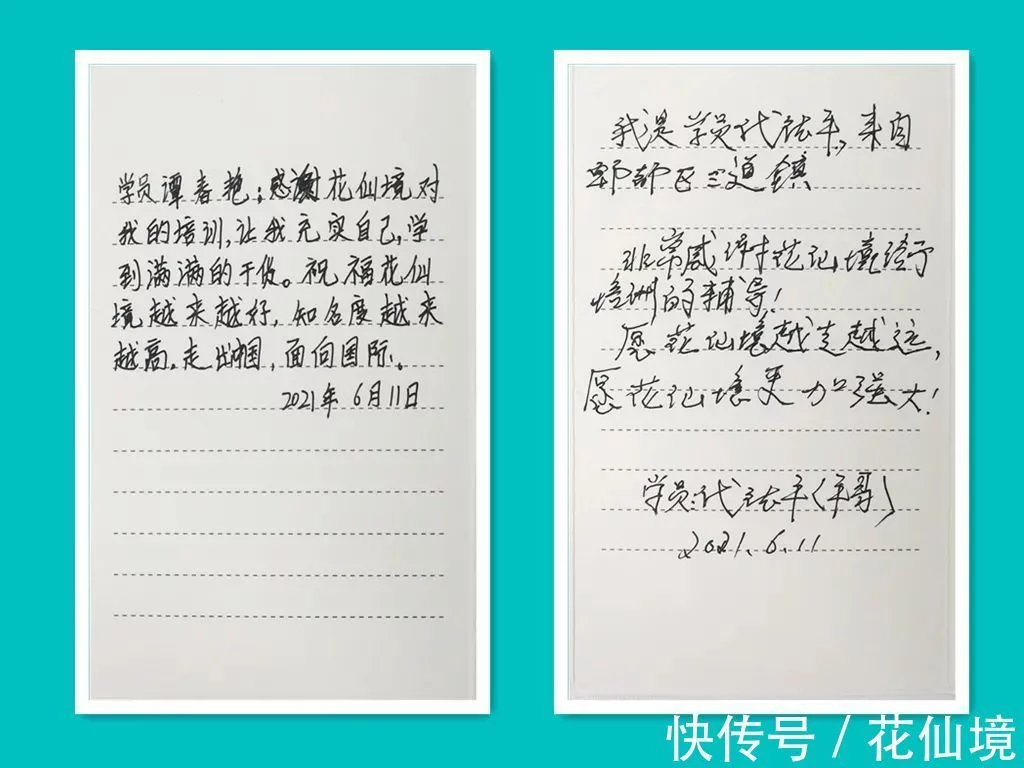 学员谭春艳:感谢花仙境对
我的培训,让我充实自己,学
到满满的干货。祝福花仙
境越来越好,知名度越来
越高,走出中国,面向国际。
2021年6月11日
我是学员代法平,来自
郫都区三道镇
非常感谢花仙境给予
培训的辅导!
愿花仙境越走越远,
愿花仙境更加强大!
学员:代法平(平哥)
2021.6.11
快传号/花仙境